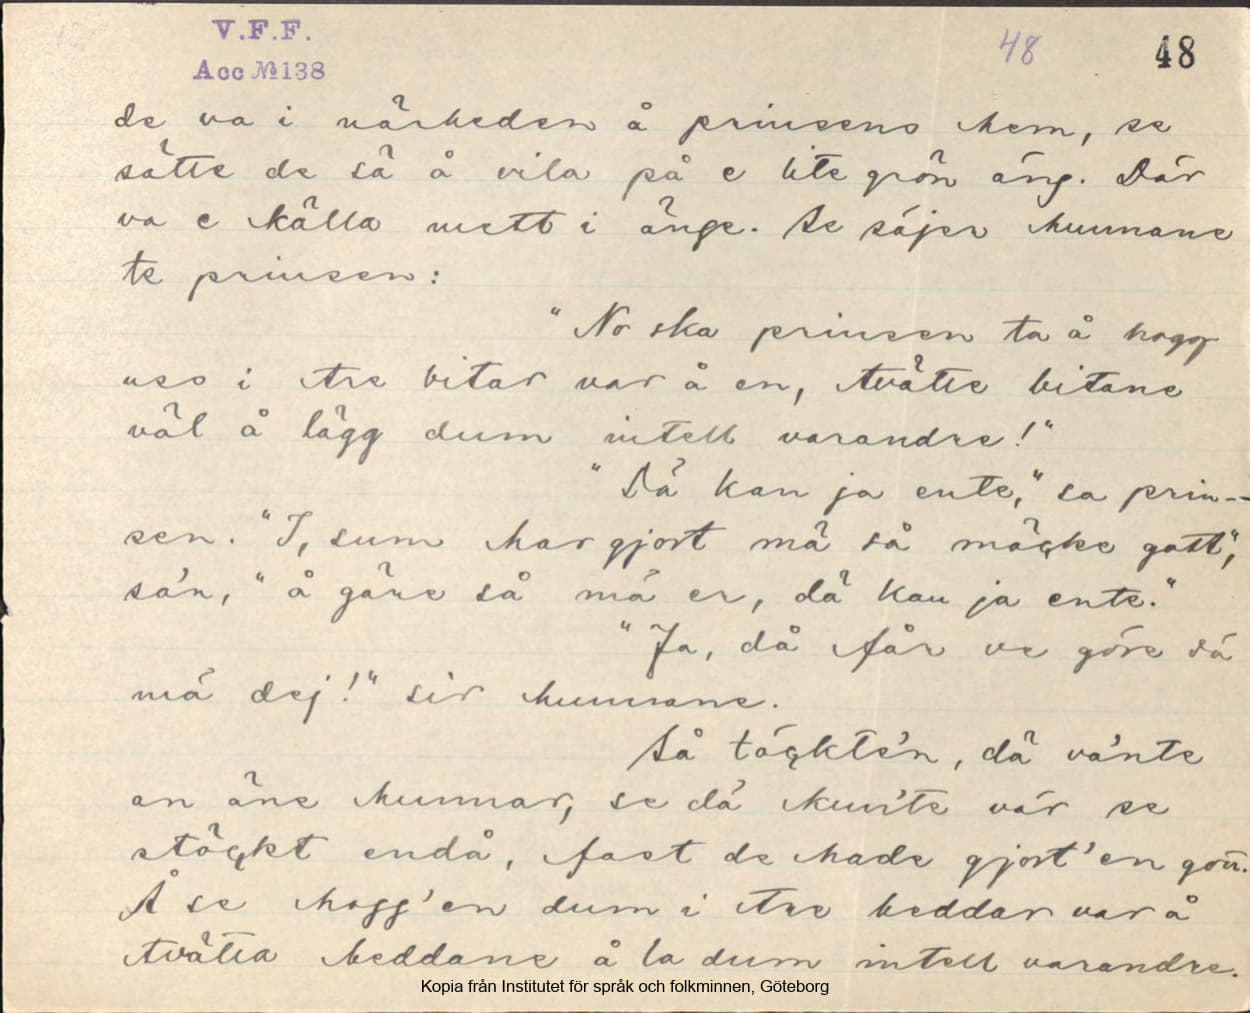 V.F.F.
Acc № 138
48 48
de va i närheden å prinsens hem, se
sätte de sä å vila på e lite grön äng. Där
va e källa mett i änge. Se säjer hunnane
te prinsen:
"No ska prinsen ta å hogg
uss i tre bitar var å en, tvätte bitane
väl å lägg dum intell varandre!"
"Dä kan ja ente," sa prin-
sen. "I, sum har gjort mä så möcke gott",
sa'n, "å göre så mä er, dä kan ja ente."
"Ja, då får ve göre så
mä dej!" sir hunnane.
Så töckte'n, dä va'nte
an äne hunnar, se dä kun'te vár se
stöckt endå, fast de hade gjort'en gott.
Å se hogg'en dum i tre beddar var å
tvätta beddane å la dum intell varandre.
Kopia från Institutet för språk och folkminnen, Göteborg